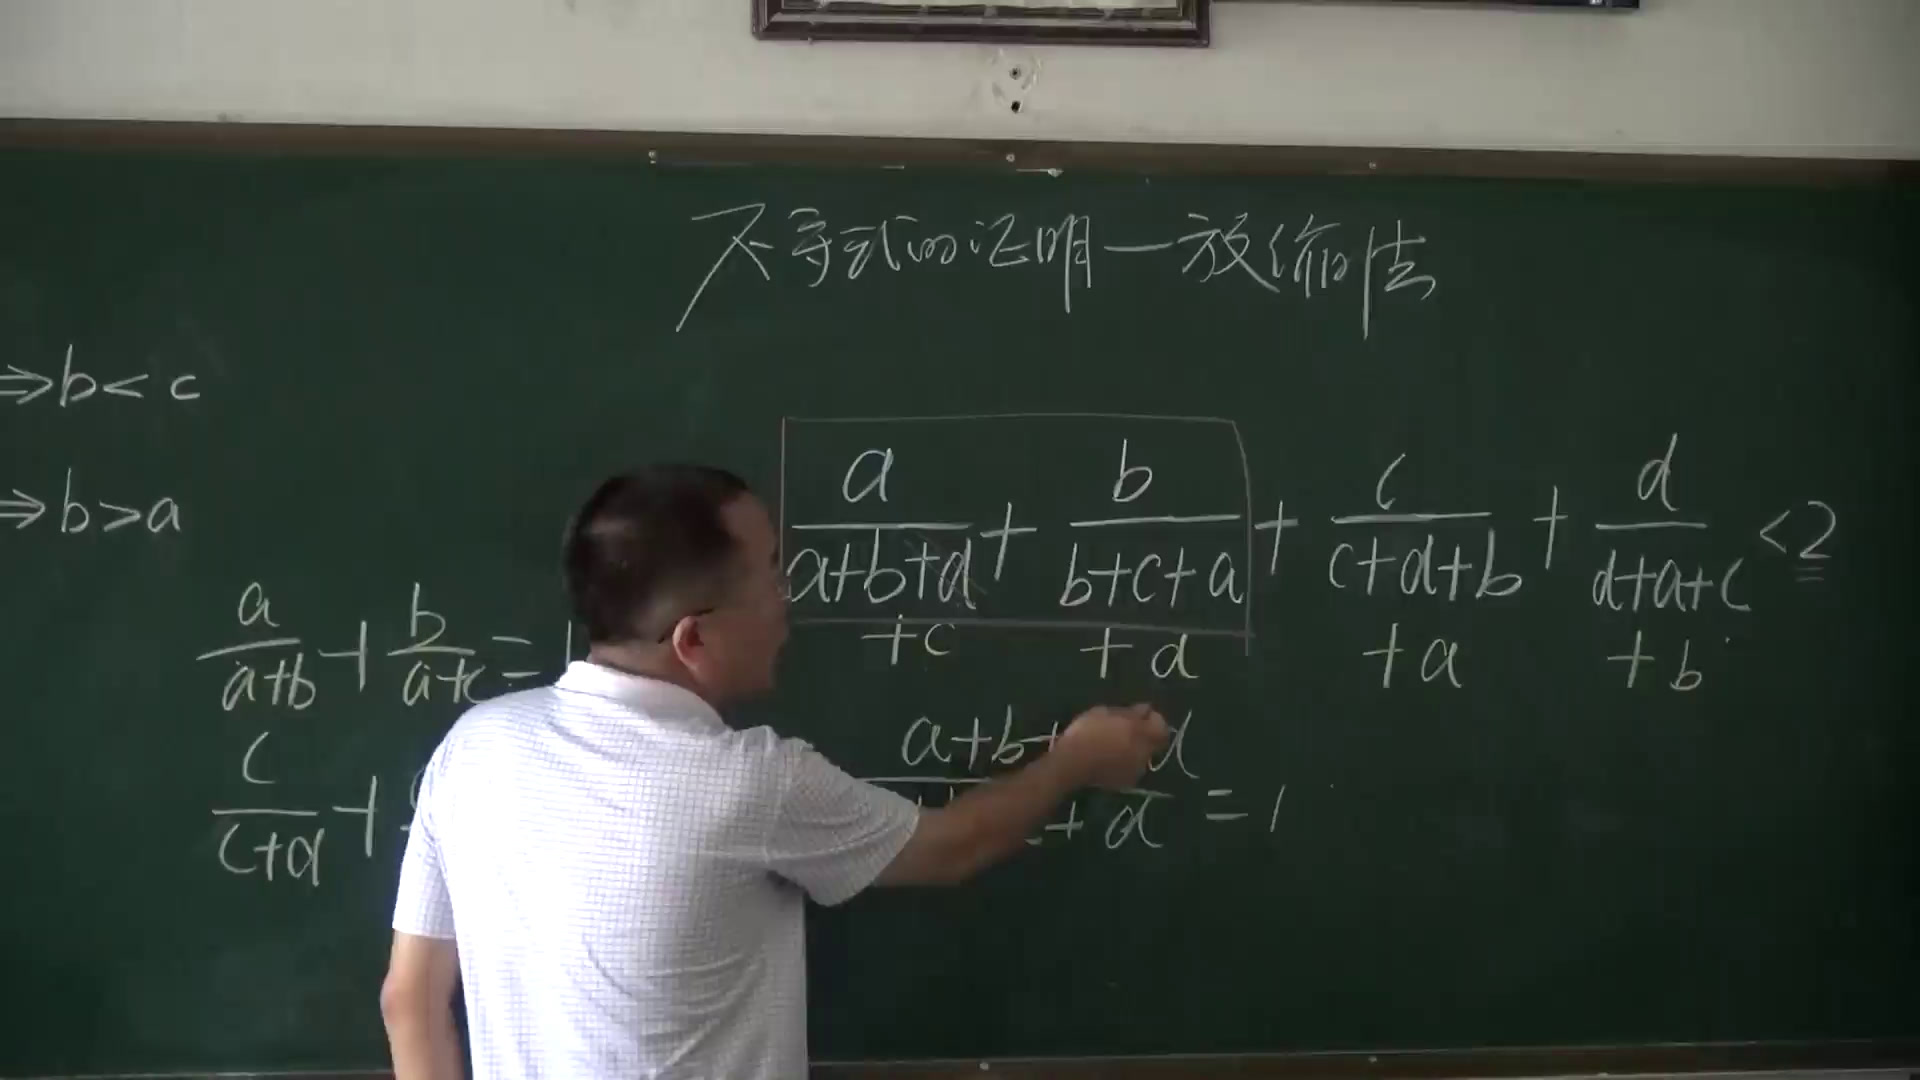 不等式的证明—放缩法
⇒b<c
⇒b>a
a/(a+b+d) + b/(b+c+a) + c/(c+d+b) + d/(d+a+c) <2
+c +d +a +b
a/(a+b) + b/(a+c) = 1
a+b+ d
c/(c+d) +
+d = 1